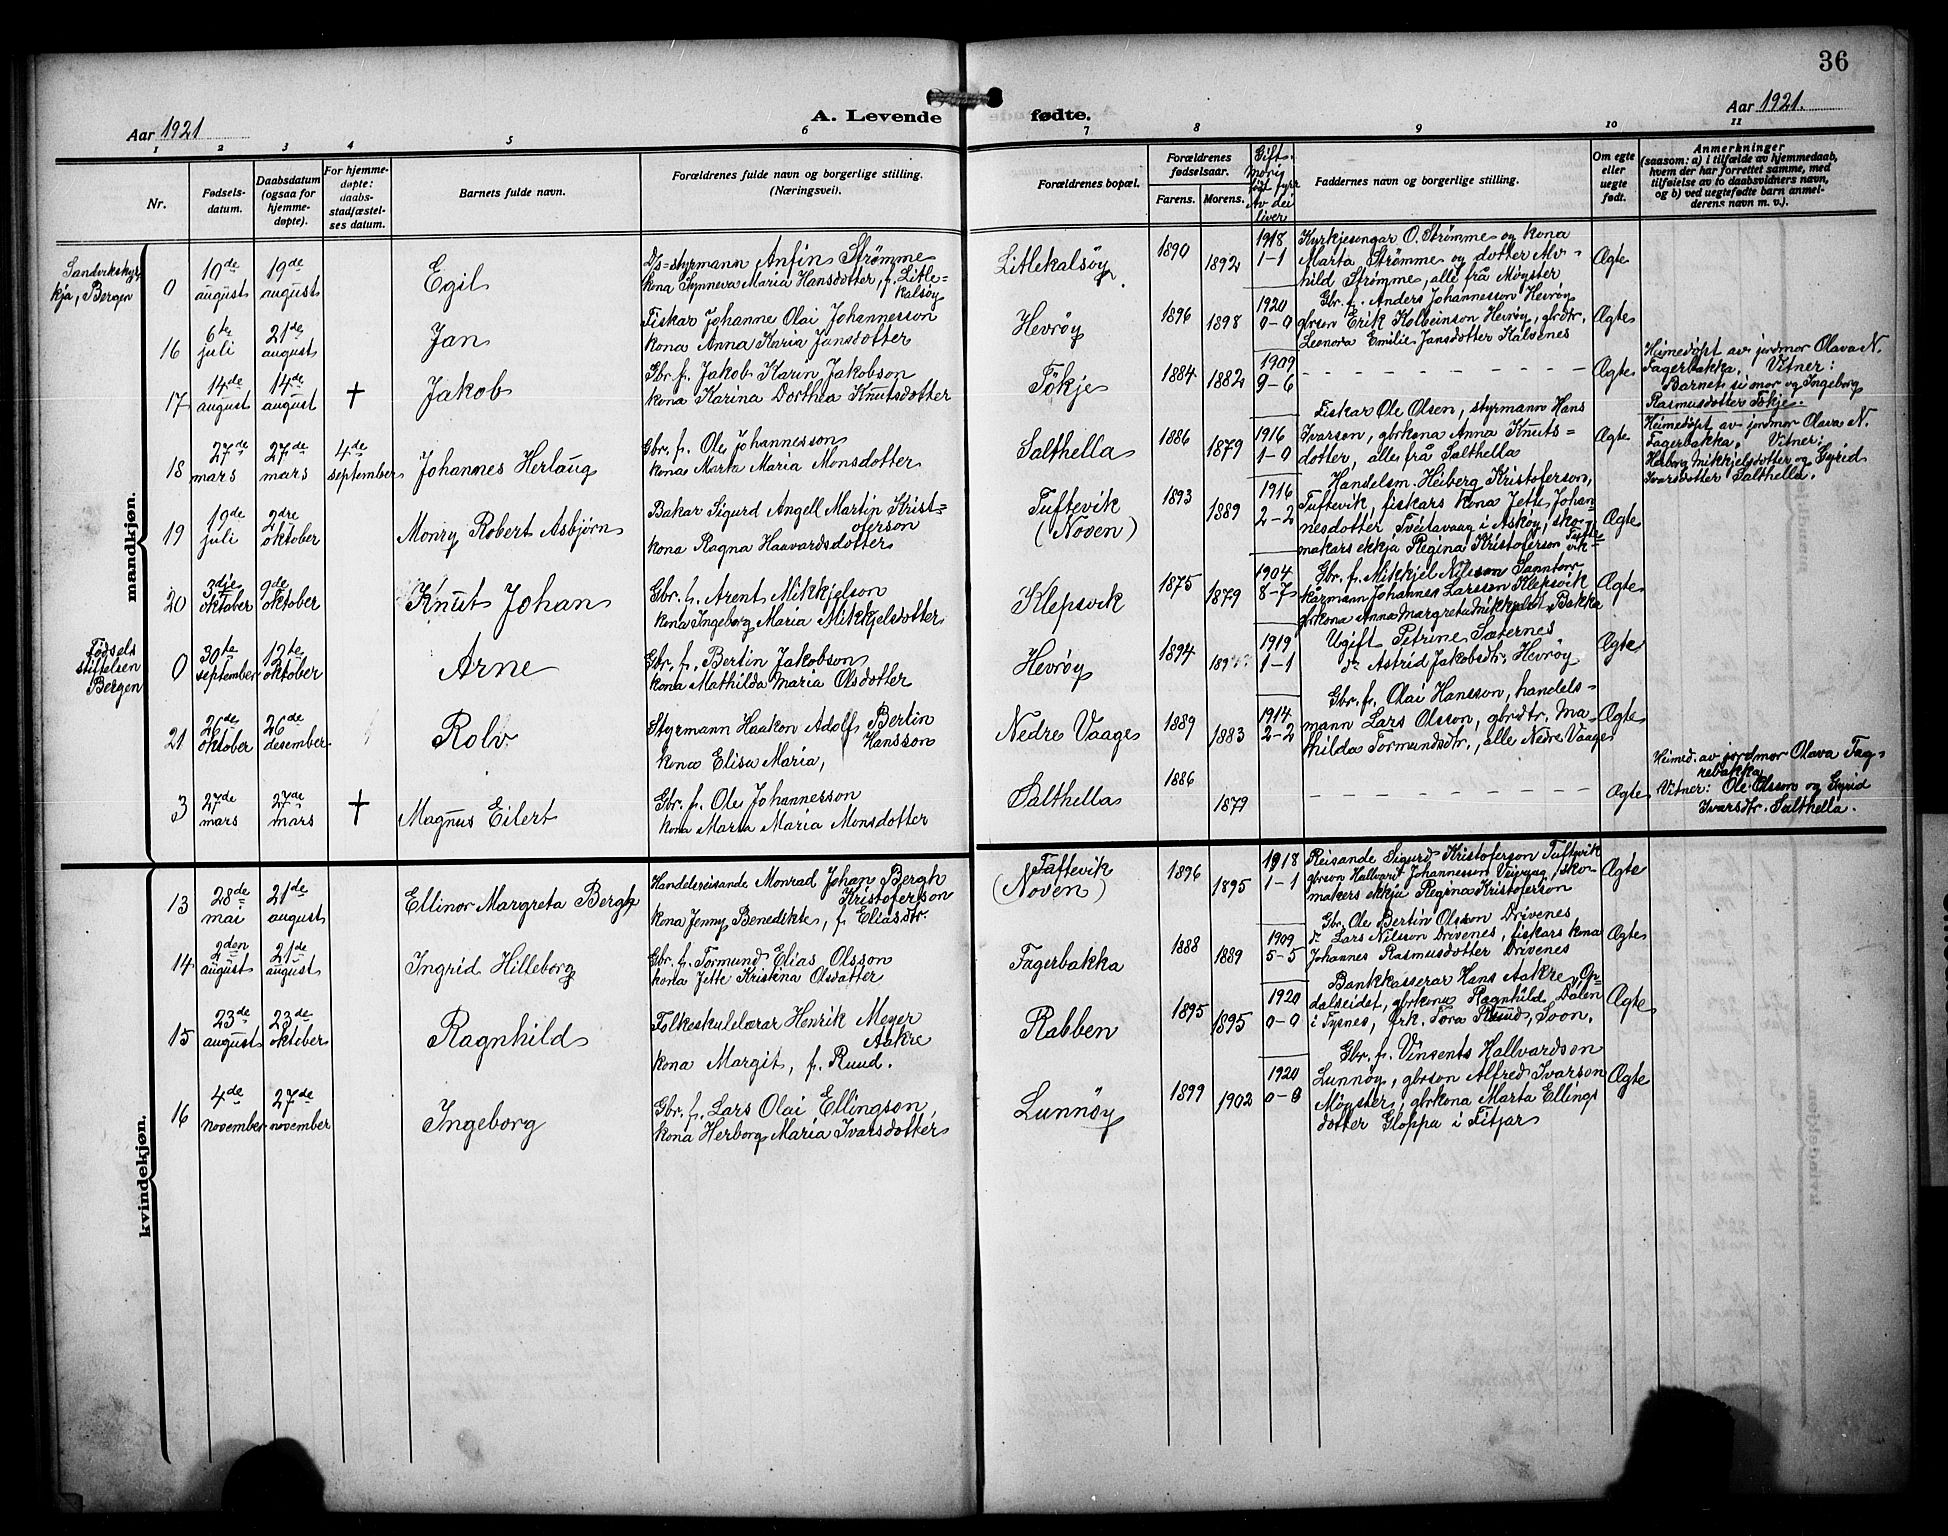 36
Aar 1921
A. Levende fødte.
Aar 1921.
1 2 3 4 5 6 7 8 9 10 11
Nr.
Fødsels-
datum.
Daabsdatum
(ogsaa for
hjemme-
døpte).
For hjemme-
døpte:
daabs-
stadfæstel-
ses datum.
Barnets fulde navn.
Forældrenes fulde navn og borgerlige stilling.
(Næringsvei).
Forældrenes bopæl.
Forældrenes
fødselsaar.
Farens. Morens.
Faddernes navn og borgerlige stilling.
Om egte
eller
uegte
født.
Anmerkninger
(saasom: a) i tilfælde av hjemmedaab,
hvem der har forrettet samme, med
tilføielse av to daabsvidners navn,
og b) ved uegtefødte barn anmel-
derens navn m. v.).
mandkjøn.
Sandvikskyr
kja, Bergen
0
10de
august
19de
august
Egil
D/s=styrmann Anfin Strømme
kona Synneva Maria Hansdotter, f. Litle=
kalsøy
Litlekalsöy
1890
1892
1918
1-1
Kyrkjesongar O. Strømme og kona
Marta Strømme og dotter
hild Strømme, alle frå Møgster
Ægte
16
6te
juli
21de
august
Jan
Fiskar Johanne Olai Johannesson
kona Anna Karia Jansdotter
Hevrøy
1896
1898
1920
0-0
Gbr. f. Anders Johannesson Hevrøy
gbrson Erik Kolbeinson Hevrøy, gbrdtr.
Leonora Emilie Jansdotter Kalvenes
Ægte
17
14de
august
14de
august
†
Jakob
Gbr. f. Jakob Karin Jakobson
kona Karina Dorthea Knutsdotter
Tökje
1884
1882
1909
9-6
- - - - - - - - - -
Ægte
Heimedöpt av jordmor Olava N.
Fagerbakka. Vitner:
Barnets si mor og Ingeborg
Rasmusdotter Tökje.
18
27de
mars
27de
mars
4de
september
Johannes Herlaug
Gbr. f. Ole Johannesson
kona Marta Maria Monsdotter
Salthella
1886
1879
1916
1-0
Fiskar Ole Olsen, styrmann Hans
Ivarson, gbrkona Anna Knuts=
dotter, alle frå Salthella
Ægte
Heimedöpt av jordmor Olava N.
Fagerbakka. Vitner:
Herborg Mikkjelsdotter og Gyrid
Ivarsdotter Salthella.
19
19de
juli
2dre
oktober
Monry Robert Asbjørn
Bakar Sigurd Angell Martin Krist=
oferson
kona Ragna Haavardsdotter
Tuftevik
(Noven)
1893
1889
1916
2-2
Handelsm. Heiberg Kristoferson,
Tuftevik, fiskars kona Jette Johan-
nesdotter Tveitavaag i Askøy, sko-
makars ekkja Regina Kristoferson Tufte
vik
Ægte
20
3dje
oktober
9de
oktober
Knut Johan
Gbr. f. Arent Mikkjelson
kona Ingeborg Maria Mikkjelsdotter
Klepsvik
1875
1879
1904
8-7
Gbr. f. Mikkjel Nilsson
Johannes Larsson Klepsvik
gbrkona Anna Margreta Mikkjelsdt. Bakka
Ægte
Fødsels
stiftelsen
Bergen
0
30te
september
12te
oktober
Arne
Gbr. f. Bertin Jakobson
kona Mathilda Maria Olsdotter
Hevrøy
1894
1919
1-1
Ugift Petrine Sæternes
do Astrid Jakobsdtr. Hevrøy
Ægte
21
26de
oktober
26de
desember
Rolv
Styrmann Haakon Adolf Bertin
Hansson
kona Elisa Maria,
Nedre Vaage
1889
1883
1914
2-2
Gbr. f. Olai Hansson, handels-
mann Lars Olsson, gbrdtr. Ma-
thilda Tormundsdtr., alle Nedre Vaage
Ægte
3
27de
mars
27de
mars
†
Magnus Eilert
Gbr. f. Ole Johannesson
kona Marta Maria Monsdotter
Salthella
1886
1879
- - - - - - - - -
Ægte
Heimed. av jordmor Olava Fag=
rebakka
Vitner: Ole Olsson og Gyrid
Ivarsdtr. Salthella.
kvindekjøn.
13
28de
mai
21de
august
Ellinor Margreta Bergh
Handelsreisande Monrad Johan Bergh
Kristoferson
kona Jenny Benedikte, f. Eliasdtr.
Tuftevik
(Noven)
1896
1895
1918
1-1
Reisande Sigurd Kristoferson Tuftevik
gbrson Hallvard Johannesson Veivaag, sko-
makers ekkje Regina Kristoferson
Ægte
14
2den
august
21de
august
Ingrid Hilleborg
Gbr. f. Tormund Elias Olsson
kona Jette Kristina Olsdatter
Fagerbakka
1888
1889
1909
5-5
Gbr. Ole Bertin Olsson Drivenes
do Lars Nilsson Drivenes, fiskars kona
Johannes Rasmusdotter Drivenes
Ægte
15
23de
august
23de
oktober
Ragnhild
Folkeskulelærar Henrik Meyer
Aakre
kona Margit, f. Ruud.
Rabben
1895
1895
1920
0-0
Bankkasserar Hans Aakre, Op-
dalseidet, gbrkona Ragnhild Dalen
i Tysnes, frk. Tora Ruud, Loon.
Ægte
16
4de
november
27de
november
Ingeborg
Gbr. f. Lars Olai Ellingson,
kona Herborg Maria Ivarsdotter
Lunnöy
1899
1902
1920
0-0
Gbr. f. Vinsents Hallvardson
Lunnöy, gbrson Alfred Ivarson
Møgster, gbrkona Marta Ellings
dotter Gloppa i Fitjar
Ægte